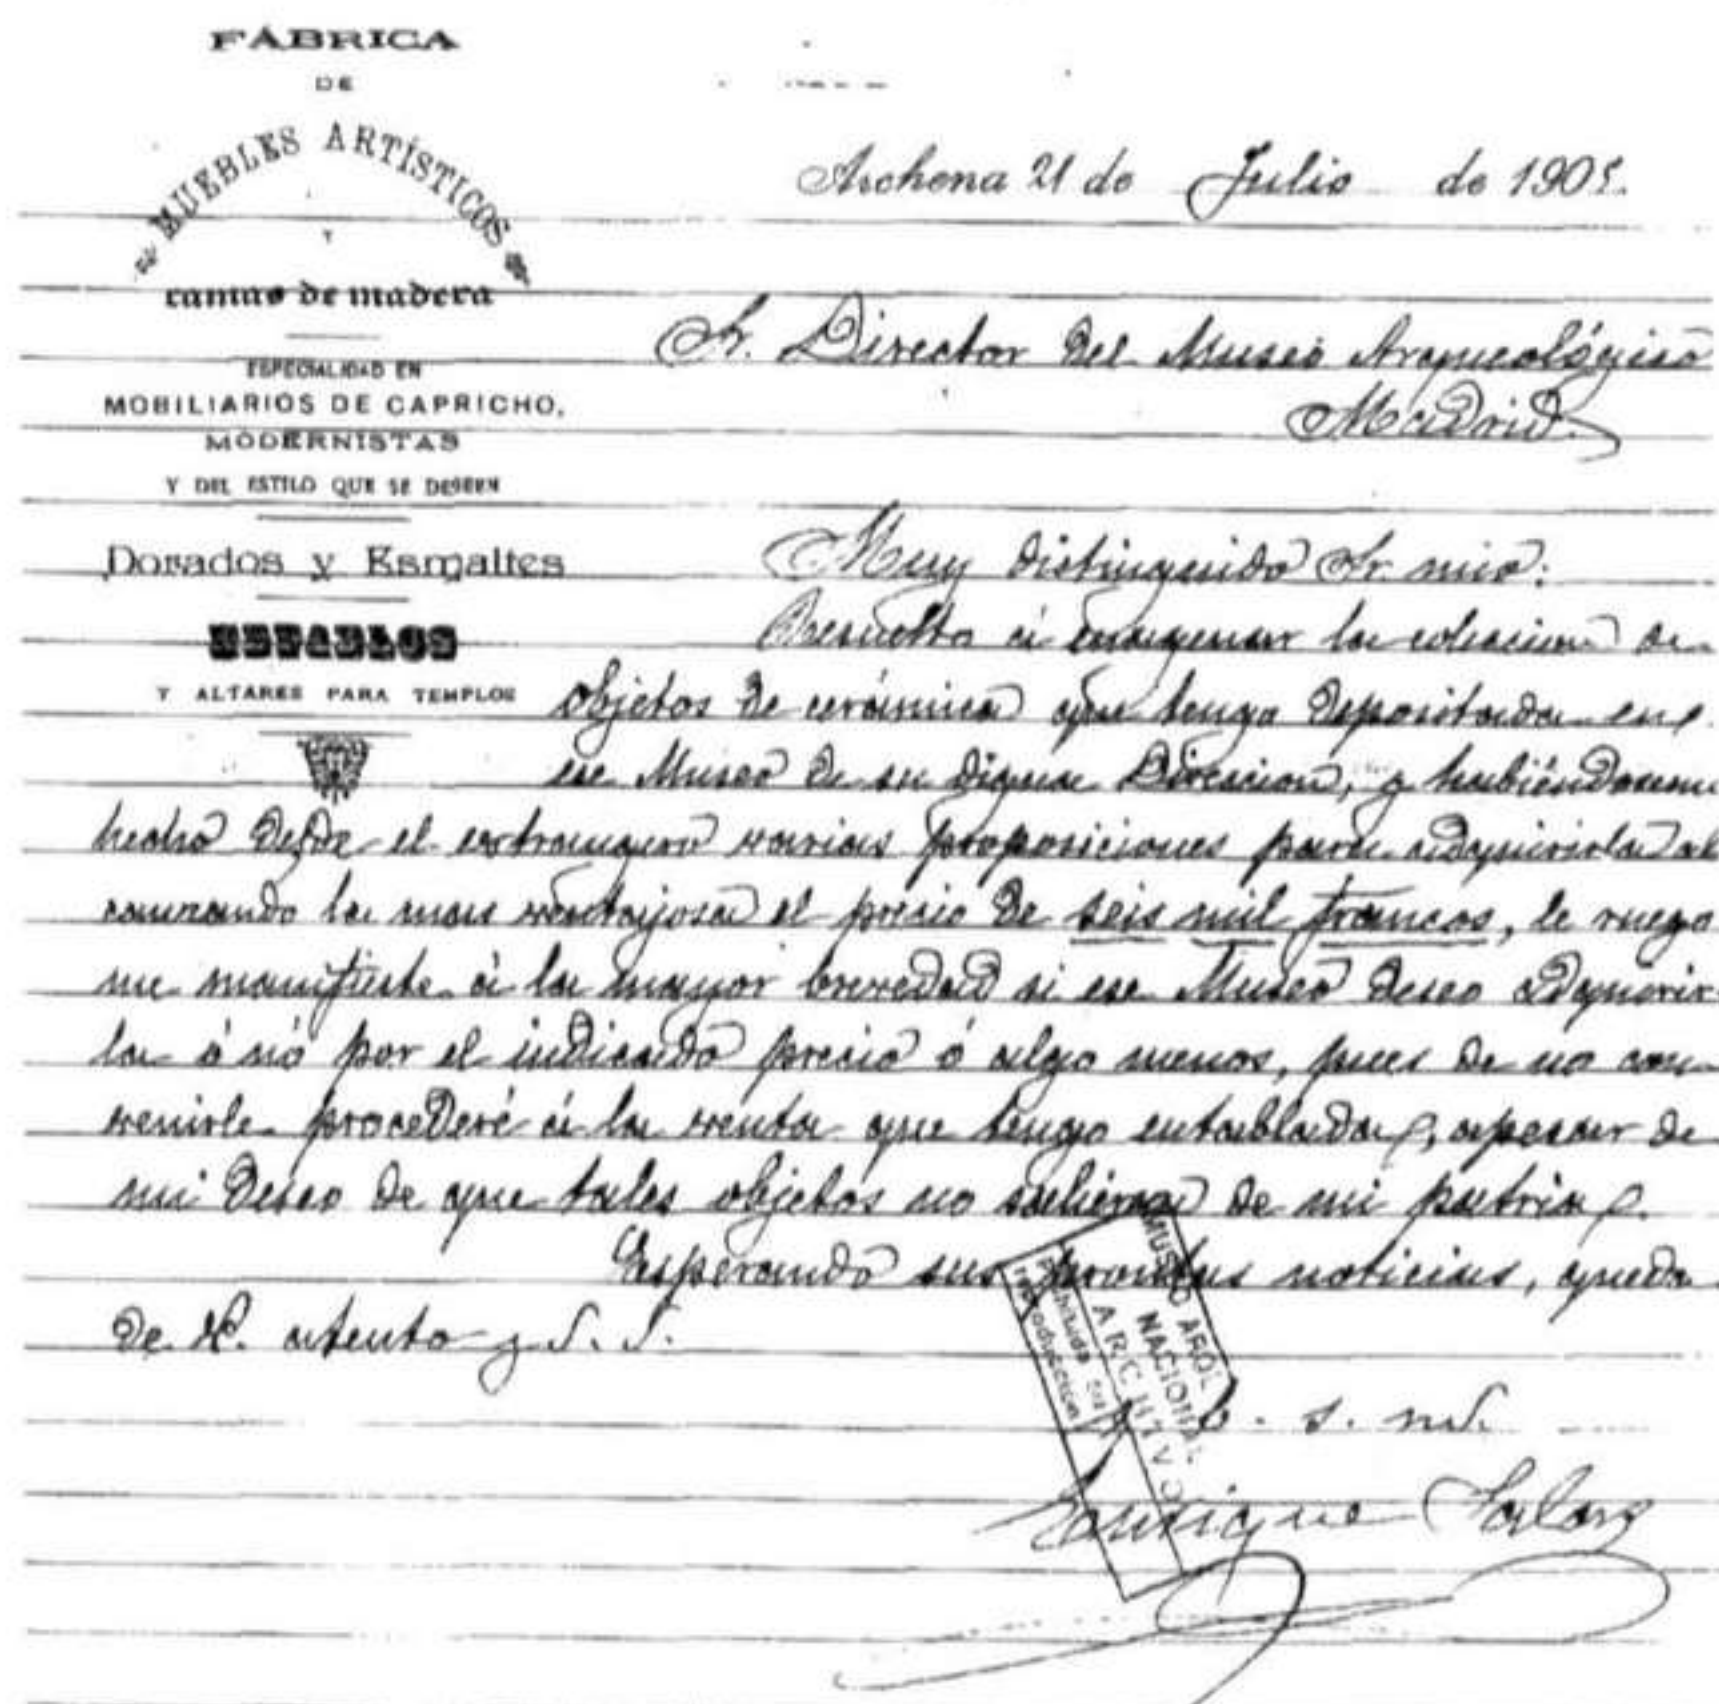 FÁBRICA
DE
MUEBLES ARTÍSTICOS
Y
camas de madera
ESPECIALIDAD EN
MOBILIARIOS DE CAPRICHO,
MODERNISTAS
Y DEL ESTILO QUE SE DESEEN
Dorados y Esmaltes
RETABLOS
Y ALTARES PARA TEMPLOS
Archena 21 de Julio de 1905.
Sr. Director del Museo Arqueológico
Madrid
Muy distinguido Sr. mio:
Resuelto á enagenar la colecion de
objetos de cerámica que tengo depositada en
ese Museo de su digna Direccion, y habiéndoseme
hecho desde el extrangero varias proposiciones para adquirirla al
canzando la mas ventajosa el precio de seis mil francos, le ruego
me manifieste á la mayor brevedad si ese Museo desea adquirir
la ó nó por el indicado precio ó algo menos, pues de no con
venirle procederé á la venta que tengo entablada, apesar de
mi deseo de que tales objetos no salieran de mi patria.
Esperando sus prontas noticias, queda
de V. atento y S. S.
q. b. s. m.
Enrique Salas
MUSEO ARQL.
NACIONAL
ARCHIVO
Prohibida su
reproducción